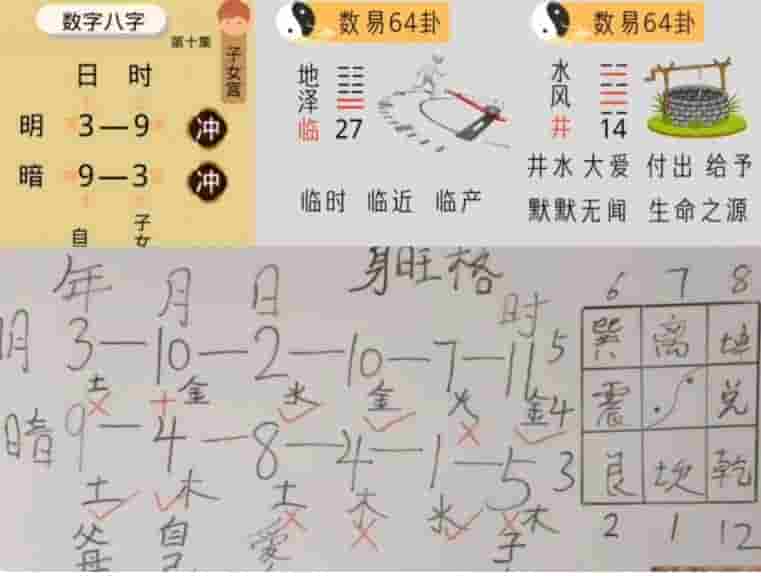 数字八字
第十集
子女宫
日 时
明 3—9 冲
暗 9—3 冲
自
子女
数易64卦
地泽临
27
临时 临近 临产
数易64卦
水风井
14
井水 大爱 付出 给予
默默无闻 生命之源
身旺格
年 月 日 时
明 3—10—2—10—7—11
土 金 水 金 火 金
暗 9—4—8—4—1—5
土 木 土 木 水 木
父母 自己 爱 子
6 7 8
5 巽 离 坤
4 震 兑
3 艮 坎 乾
2 1 12